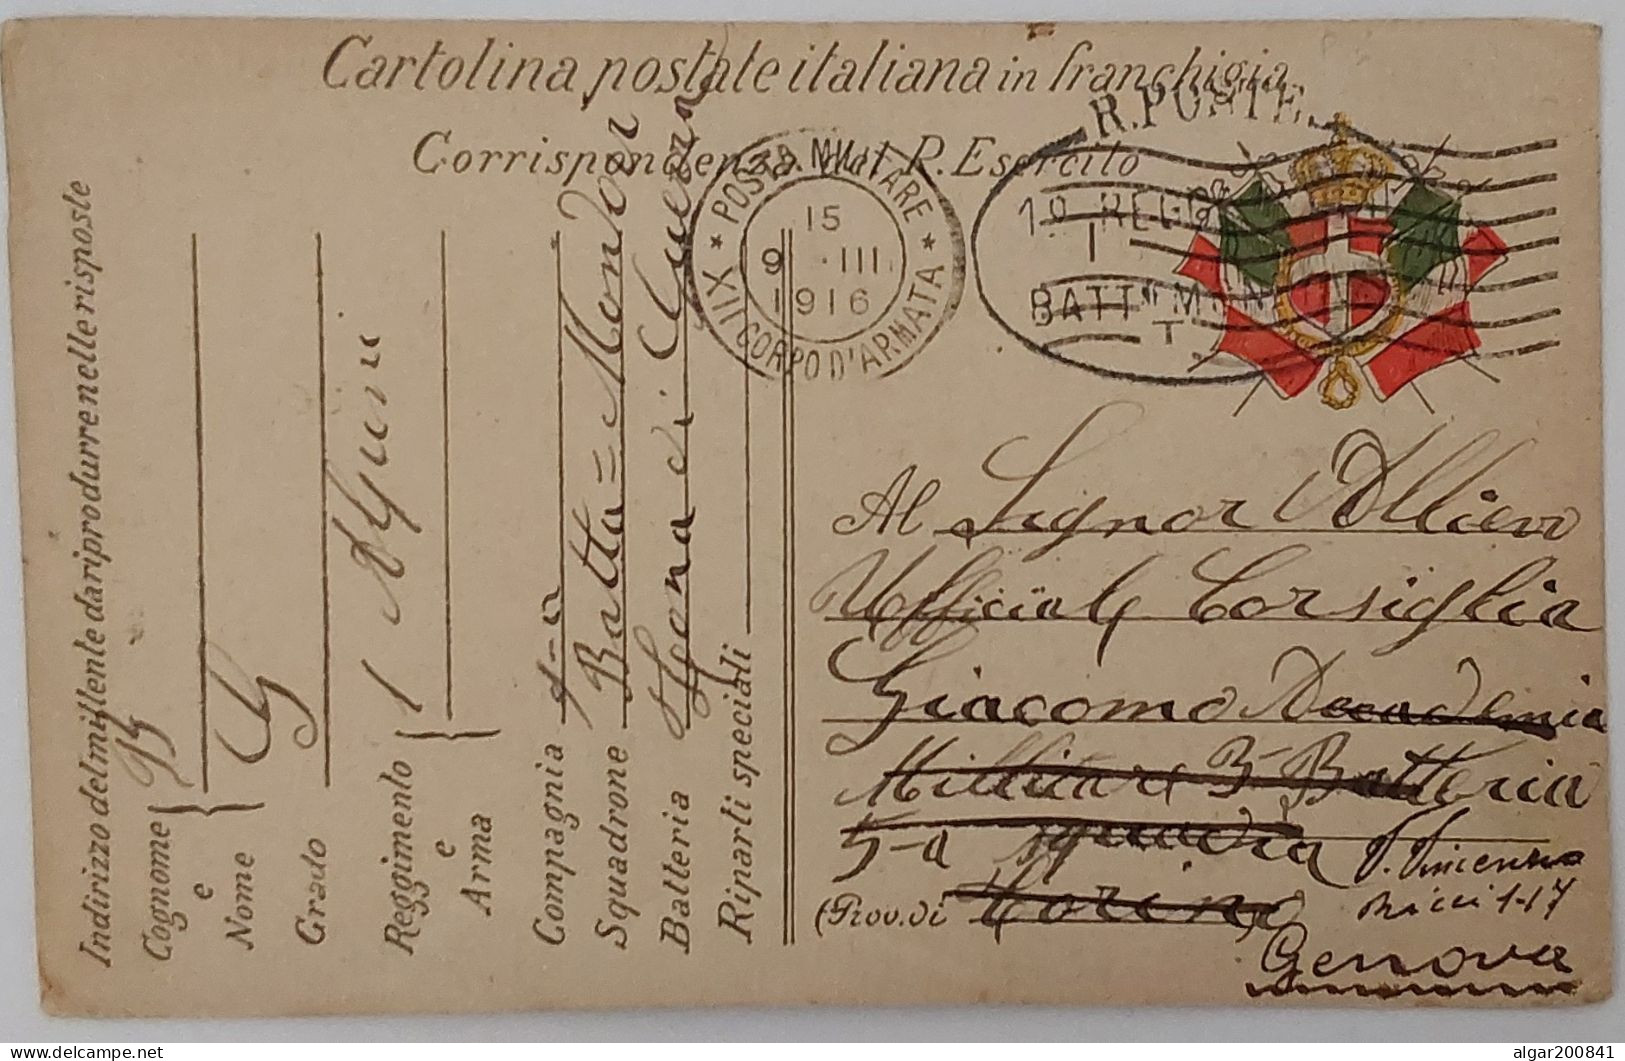 Cartolina postale italiana in franchigia
Corrispondenza del R. Esercito
R. PONTE
POSTA MILITARE
15
9 · III
1916
* XII CORPO D'ARMATA *
1º REGG
I
BATT
Indirizzo del mittente da riprodurre nelle risposte
Cognome e Nome
Grado
Reggimento e Arma
1 Alpini
Compagnia
1-a
Squadrone
Batta = Mondovì
Batteria
Zona di Guerra
Riparti speciali
Al Signor Allievo
Ufficiale Corsiglia
Giacomo Accademia
Militare 3ª Batteria
5-a squadra
V. Vincenzo
Ricci 1-17
(Prov. di Torino)
Genova
algar200841